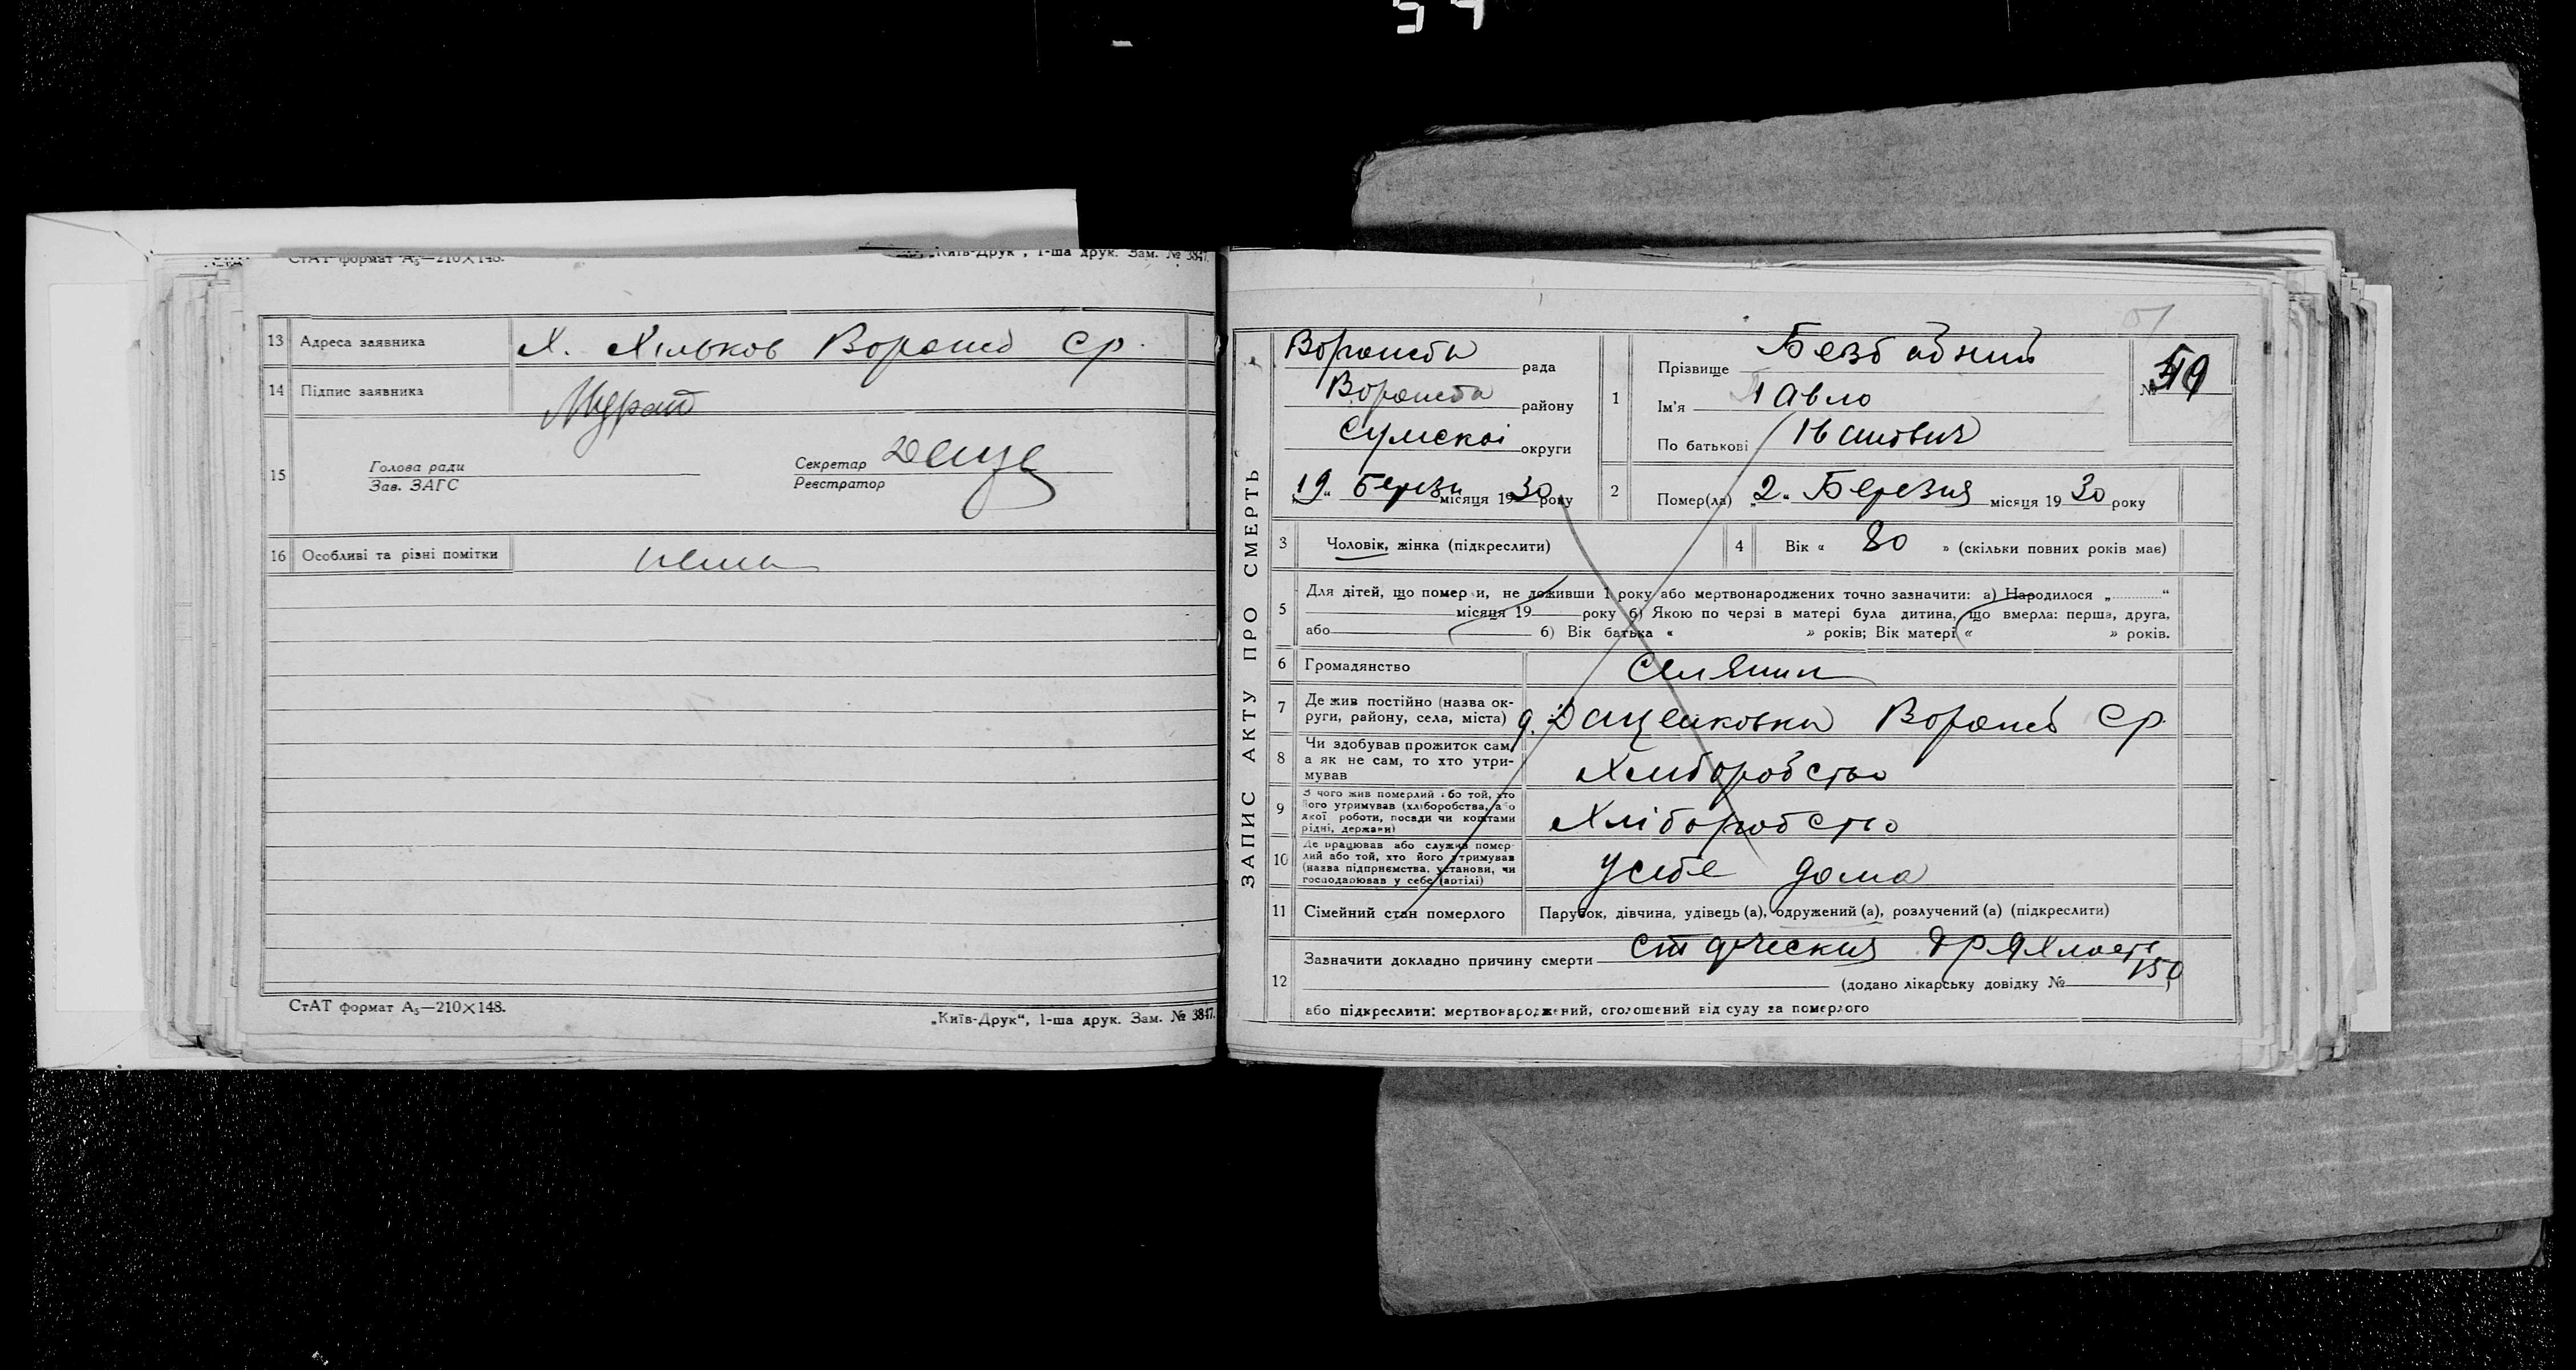 54
СтАТ формат А₅—210×148.
„Київ-Друк“, 1-ша друк. Зам. № 3847.
13 Адреса заявника Х. Хільков Ворожб Ср.
14 Підпис заявника
15 Голова ради
Зав. ЗАГС
Секретар
Реєстратор
16 Особливі та різні помітки нема
СтАТ формат А₅—210×148.
„Київ-Друк“, 1-ша друк. Зам. № 3847.
ЗАПИС АКТУ ПРО СМЕРТЬ
51
Ворожба рада
Ворожба району
Сумскоі округи
„19“ Березн місяця 1930 року
1 Прізвище
Ім'я Павло
По батькові Іванович
№
2 Помер(ла) „2“ Березня місяця 1930 року
3 Чоловік, жінка (підкреслити)
4 Вік « 80 » (скільки повних років має)
5 Для дітей, що померли, не доживши 1 року або мертвонароджених точно зазначити: а) Народилося „ “
місяця 19 року б) Якою по черзі в матері була дитина, що вмерла: перша, друга,
або б) Вік батька « » років; Вік матері « » років.
6 Громадянство Селянин
7 Де жив постійно (назва ок-
руги, району, села, міста) д. Даценковка Ворожб Ср.
8 Чи здобував прожиток сам,
а як не сам, то хто утри-
мував Хліборобство
9 З чого жив померлий або той, хто
його утримував (хліборобства, або
якої роботи, посади чи коштами
рідні, держави) Хліборобство
10 Де працював або служив помер-
лий або той, хто його утримував
(назва підприємства, установи, чи
господарював у себе (артілі) У себе дома
11 Сімейний стан померлого Парубок, дівчина, удівець (а), одружений (а), розлучений (а) (підкреслити)
12 Зазначити докладно причину смерти старческая дряхлость
(додано лікарську довідку № 150)
або підкреслити: мертвонароджений, оголошений від суду за померлого